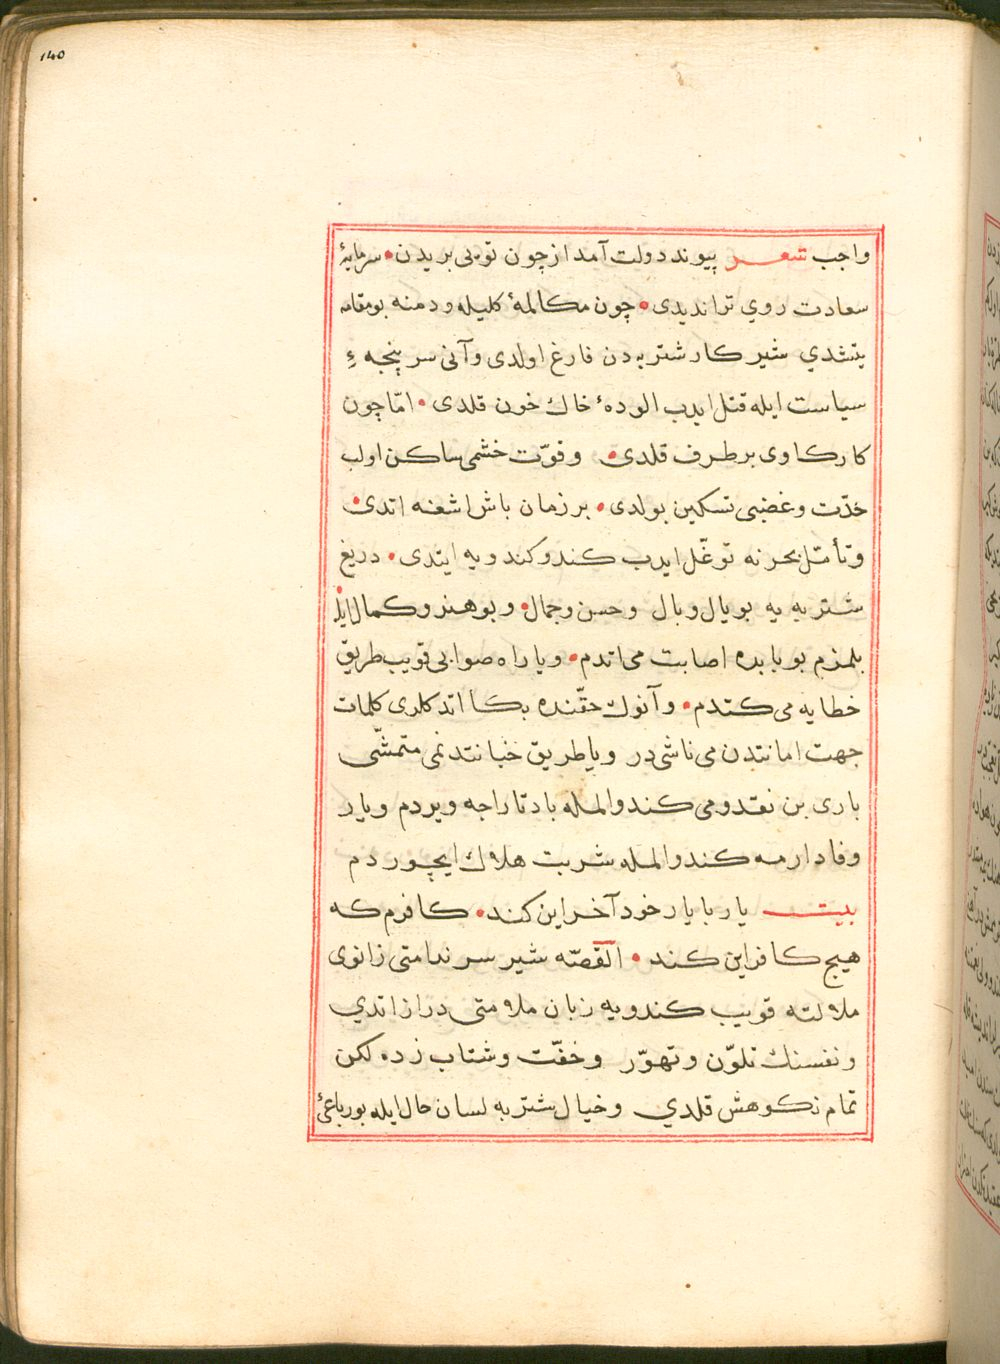 ١٤٥
واجب شعر پیوند دولت آمد از چون توبی بریدن • سرمایهٔ
سعادت روي ترا ندیدی • چون مکالمهٔ کلیله و دمنه بو مقامه
یتشدي شیر کار شتربه دن فارغ اولدی و آنی سر پنجه ءِ
سیاست ایله قتل ایدب الودهٔ خاك خون قلدی • امّا چون
کار کاوی بر طرف قلدی • و قوّت خشمی ساکن اولب
حدّت و غضبی تسکین بولدی • بر زمان باش اشغه اتدی •
و تأمّل بحرنه توغّل ایدب کندو کندویه ایتدی • دریغ
شتربه یه بو یال و بال و حسن و جمال • و بو هنر و کمال ایله •
بلمزم بو بابده اصابت می اتدم • و یا راه صوابی قویب طریق
خطایه می کتدم • و آنوك حقّنده بکا اتدکلری کلمات
جهت امانتدن می ناشی در و یا طریق خیانتدنمی متمشّی
باری بن نقدومی کندو المله باد تاراجه ویردم و یار
وفادارمه کندو المله شربت هلاك ایچوردم
بیت یار با یار خود آخر این کند • کافرم که
هیچ کافر این کند • القصّه شیر سر ندامتی زانوی
ملالته قویب کندویه زبان ملامتی دراز اتدي
و نفسنك تلوّن و تهوّر و خفّت و شتاب زده لکن
تمام نکوهش قلدي و خیال شتربه لسان حال ایله بو رباعیٔ